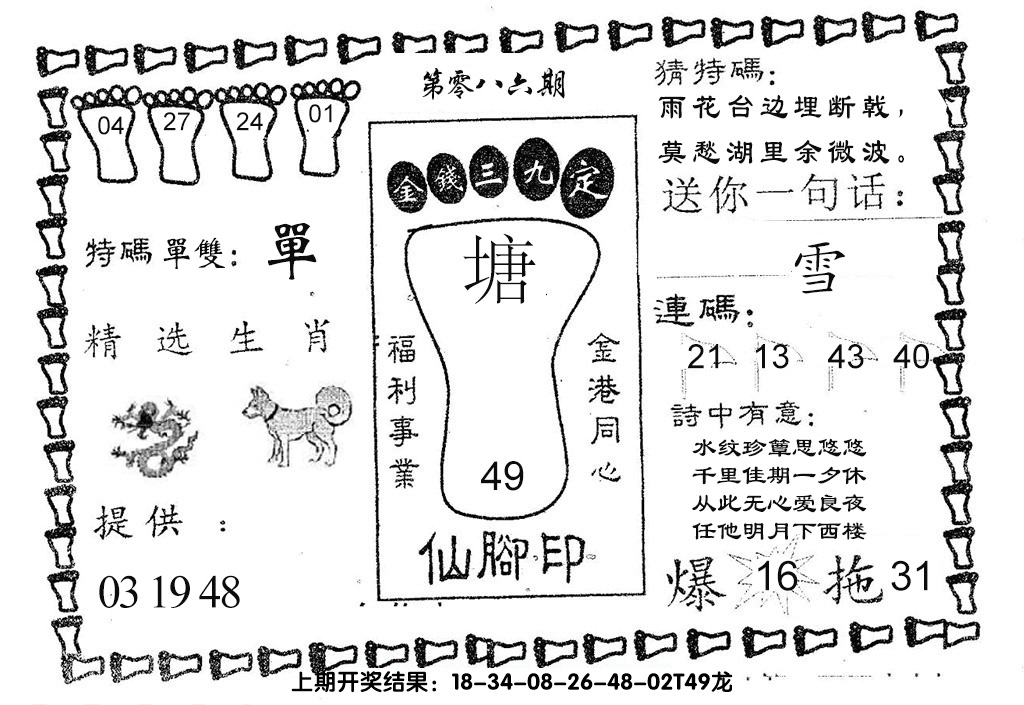 第零八六期
04 27 24 01
特碼單雙：單
精选生肖
提供：
03 19 48
金錢三九定
塘
49
福利事業
金港同心
仙腳印
猜特碼：
雨花台边埋断戟，
莫愁湖里余微波。
送你一句话：
雪
連碼：
21 13 43 40
詩中有意：
水纹珍簟思悠悠
千里佳期一夕休
从此无心爱良夜
任他明月下西楼
爆 16 拖 31
上期开奖结果：18-34-08-26-48-02T49龙